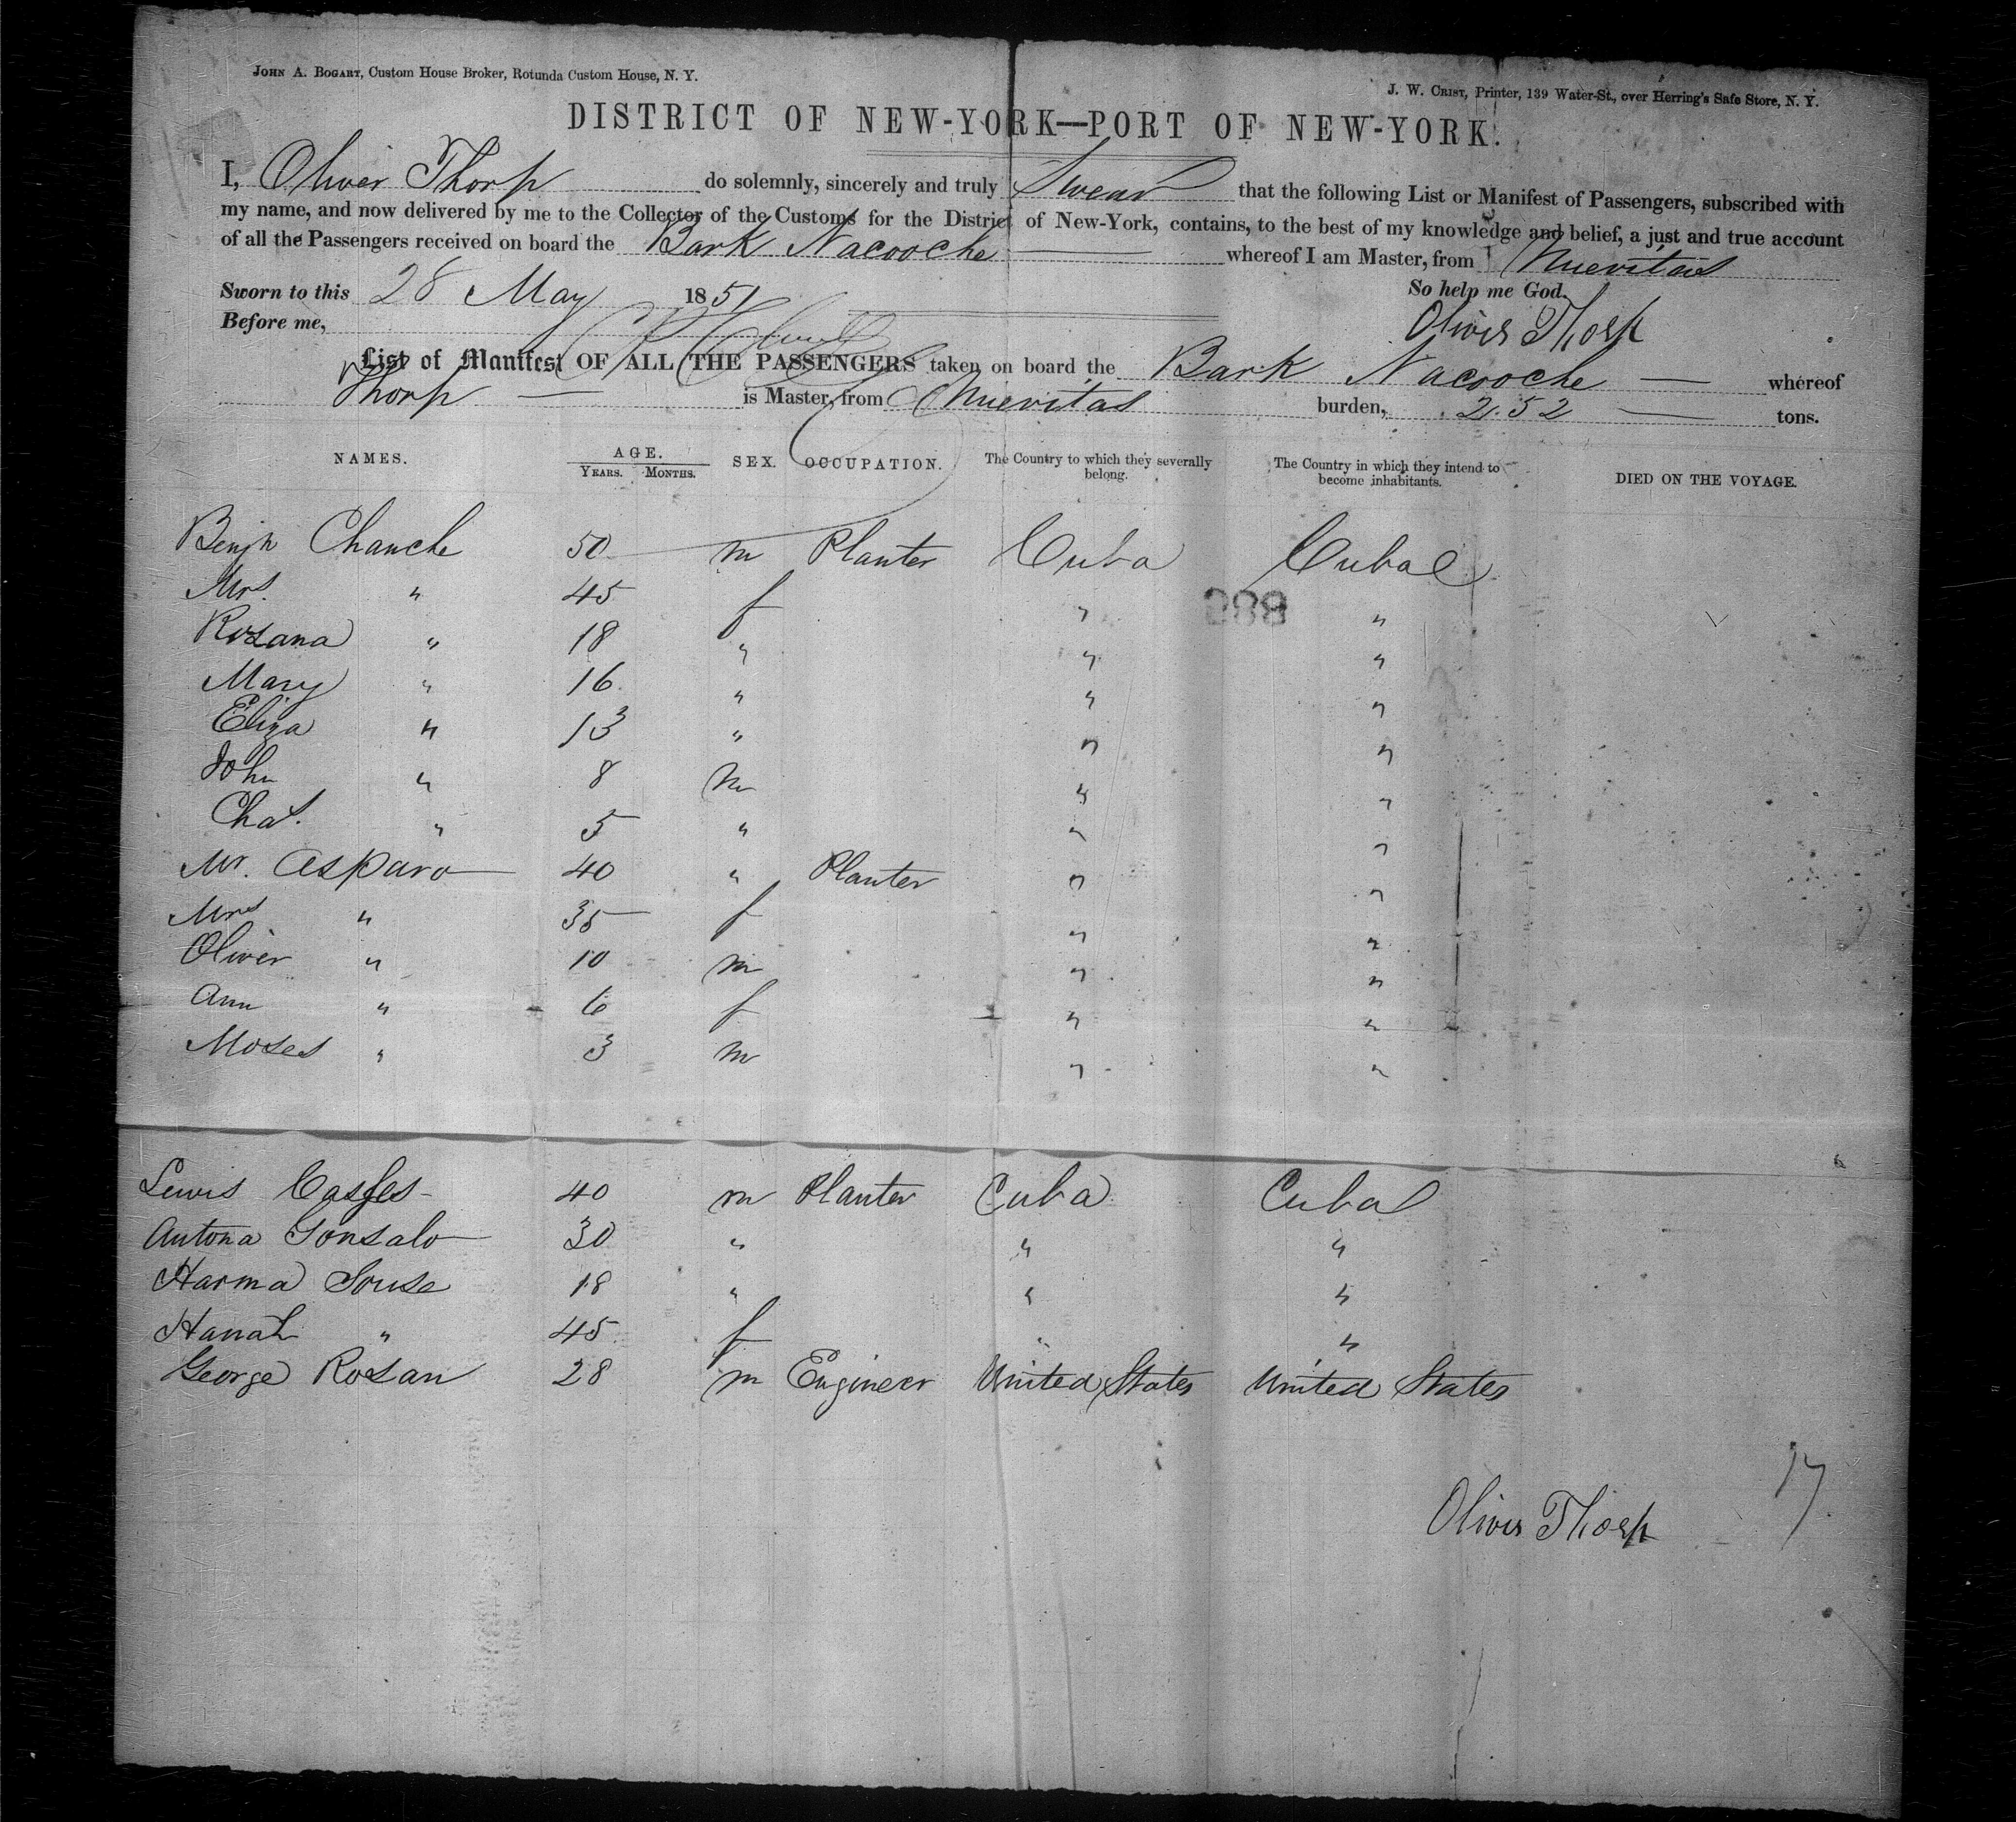 JOHN A. BOGART, Custom House Broker, Rotunda Custom House, N. Y.
J. W. CRIST, Printer, 139 Water-St., over Herring's Safe Store, N. Y.
DISTRICT OF NEW-YORK—PORT OF NEW-YORK.
I, Oliver Thorp do solemnly, sincerely and truly Swear that the following List or Manifest of Passengers, subscribed with
my name, and now delivered by me to the Collector of the Customs for the District of New-York, contains, to the best of my knowledge and belief, a just and true account
of all the Passengers received on board the Bark Nacooche whereof I am Master, from Nuevitas
Sworn to this 28 May 1851 So help me God.
Before me, Oliver Thorp
List of Manifest OF ALL THE PASSENGERS taken on board the Bark Nacooche — whereof
Thorp — is Master, from Nuevitas burden, 252 — tons.
NAMES. AGE. SEX. OCCUPATION. The Country to which they severally belong. The Country in which they intend to become inhabitants. DIED ON THE VOYAGE.
YEARS. MONTHS.
Benjn Chanche 50 m Planter Cuba Cuba
Mrs. " 45 f " "
388
Rosana " 18 " " "
Mary " 16 " " "
Eliza " 13 " " "
John " 8 m " "
Chas. " 5 " " "
Mr. Asparo 40 " Planter " "
Mrs " 35 f " "
Oliver " 10 m " "
Ann " 6 f " "
Moses " 3 m " "
Lewis 40 m Planter Cuba Cuba
Antona Gonsalo 30 " " "
Harma Souse 18 " " "
Hanah " 45 f " "
George Rosan 28 m Engineer United States United States
17
Oliver Thorp